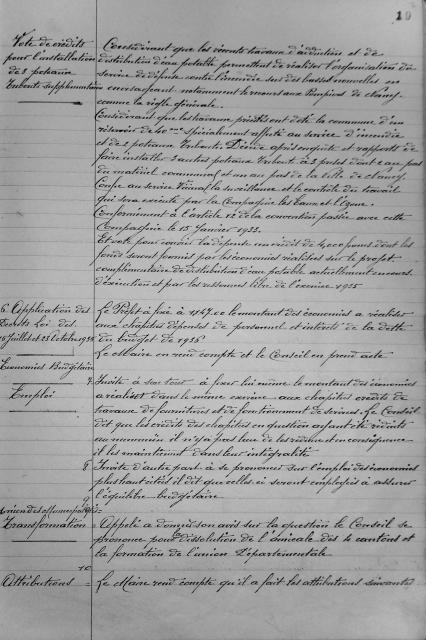 19
Vote de crédits
pour l'installation
des poteaux
Incendie supplémentaires
Considérant que les récents travaux d'adduction et de
distribution d'eau potable permettent de réaliser l'organisation du
service de défense contre l'incendie sur des bases nouvelles en
envisageant notamment le recours aux Pompiers de Nancy
comme la règle générale.
Considérant que les travaux précités ont doté la commune d'un
réservoir de 60 m3 spécialement affecté au service d'incendie
et des poteaux Décide après enquête et rapports de
faire installer 3 autres poteaux à 2 prises dont un au pas
du matériel communal et un au pas de la ville de Nancy.
Confie au service Vicinal la surveillance et le contrôle du travail
qui sera exécuté par la Compagnie les Eaux et l'Ozone.
Conformément à l'article 12 de la convention passée avec cette
Compagnie le 15 Janvier 1933.
Et vote pour couvrir la dépense un crédit de francs dont les
fonds seront fournis par les économies réalisées sur le projet
complémentaire de distribution d'eau potable actuellement en cours
d'exécution et par les ressources libres de l'exercice 1935
6 Application des
Décrets Loi des
16 Juillet et 25 Octobre 1935
Le Préfet a fixé à le montant des économies à réaliser
aux chapitres dépenses de personnel et intérêts de la dette
du budget de 1936
Le Maire en rend compte et le Conseil en prend acte
Economies Budgétaires
Emploi
7. Invité à son tour à fixer lui même le montant des économies
à réaliser dans le même exercice aux chapitres crédits de
travaux de fournitures et de fonctionnement de services. Le Conseil
dit que les crédits des chapitres en question ayant été réduits
au minimum il n'y a pas lieu de les réduire et en conséquence
il les maintient dans leur intégralité
8 Invité d'autre part à se prononcer sur l'emploi des économies
plus haut citées il dit que celles-ci seront employées à assurer
l'équilibre budgétaire
9
Union des
Transformation
Appelé à donner son avis sur la question le Conseil se
prononce pour la dissolution de l'amicale des 4 cantons et
la formation de l'union Départementale
10
Attributions = Le Maire rend compte qu'il a fait les attributions suivantes